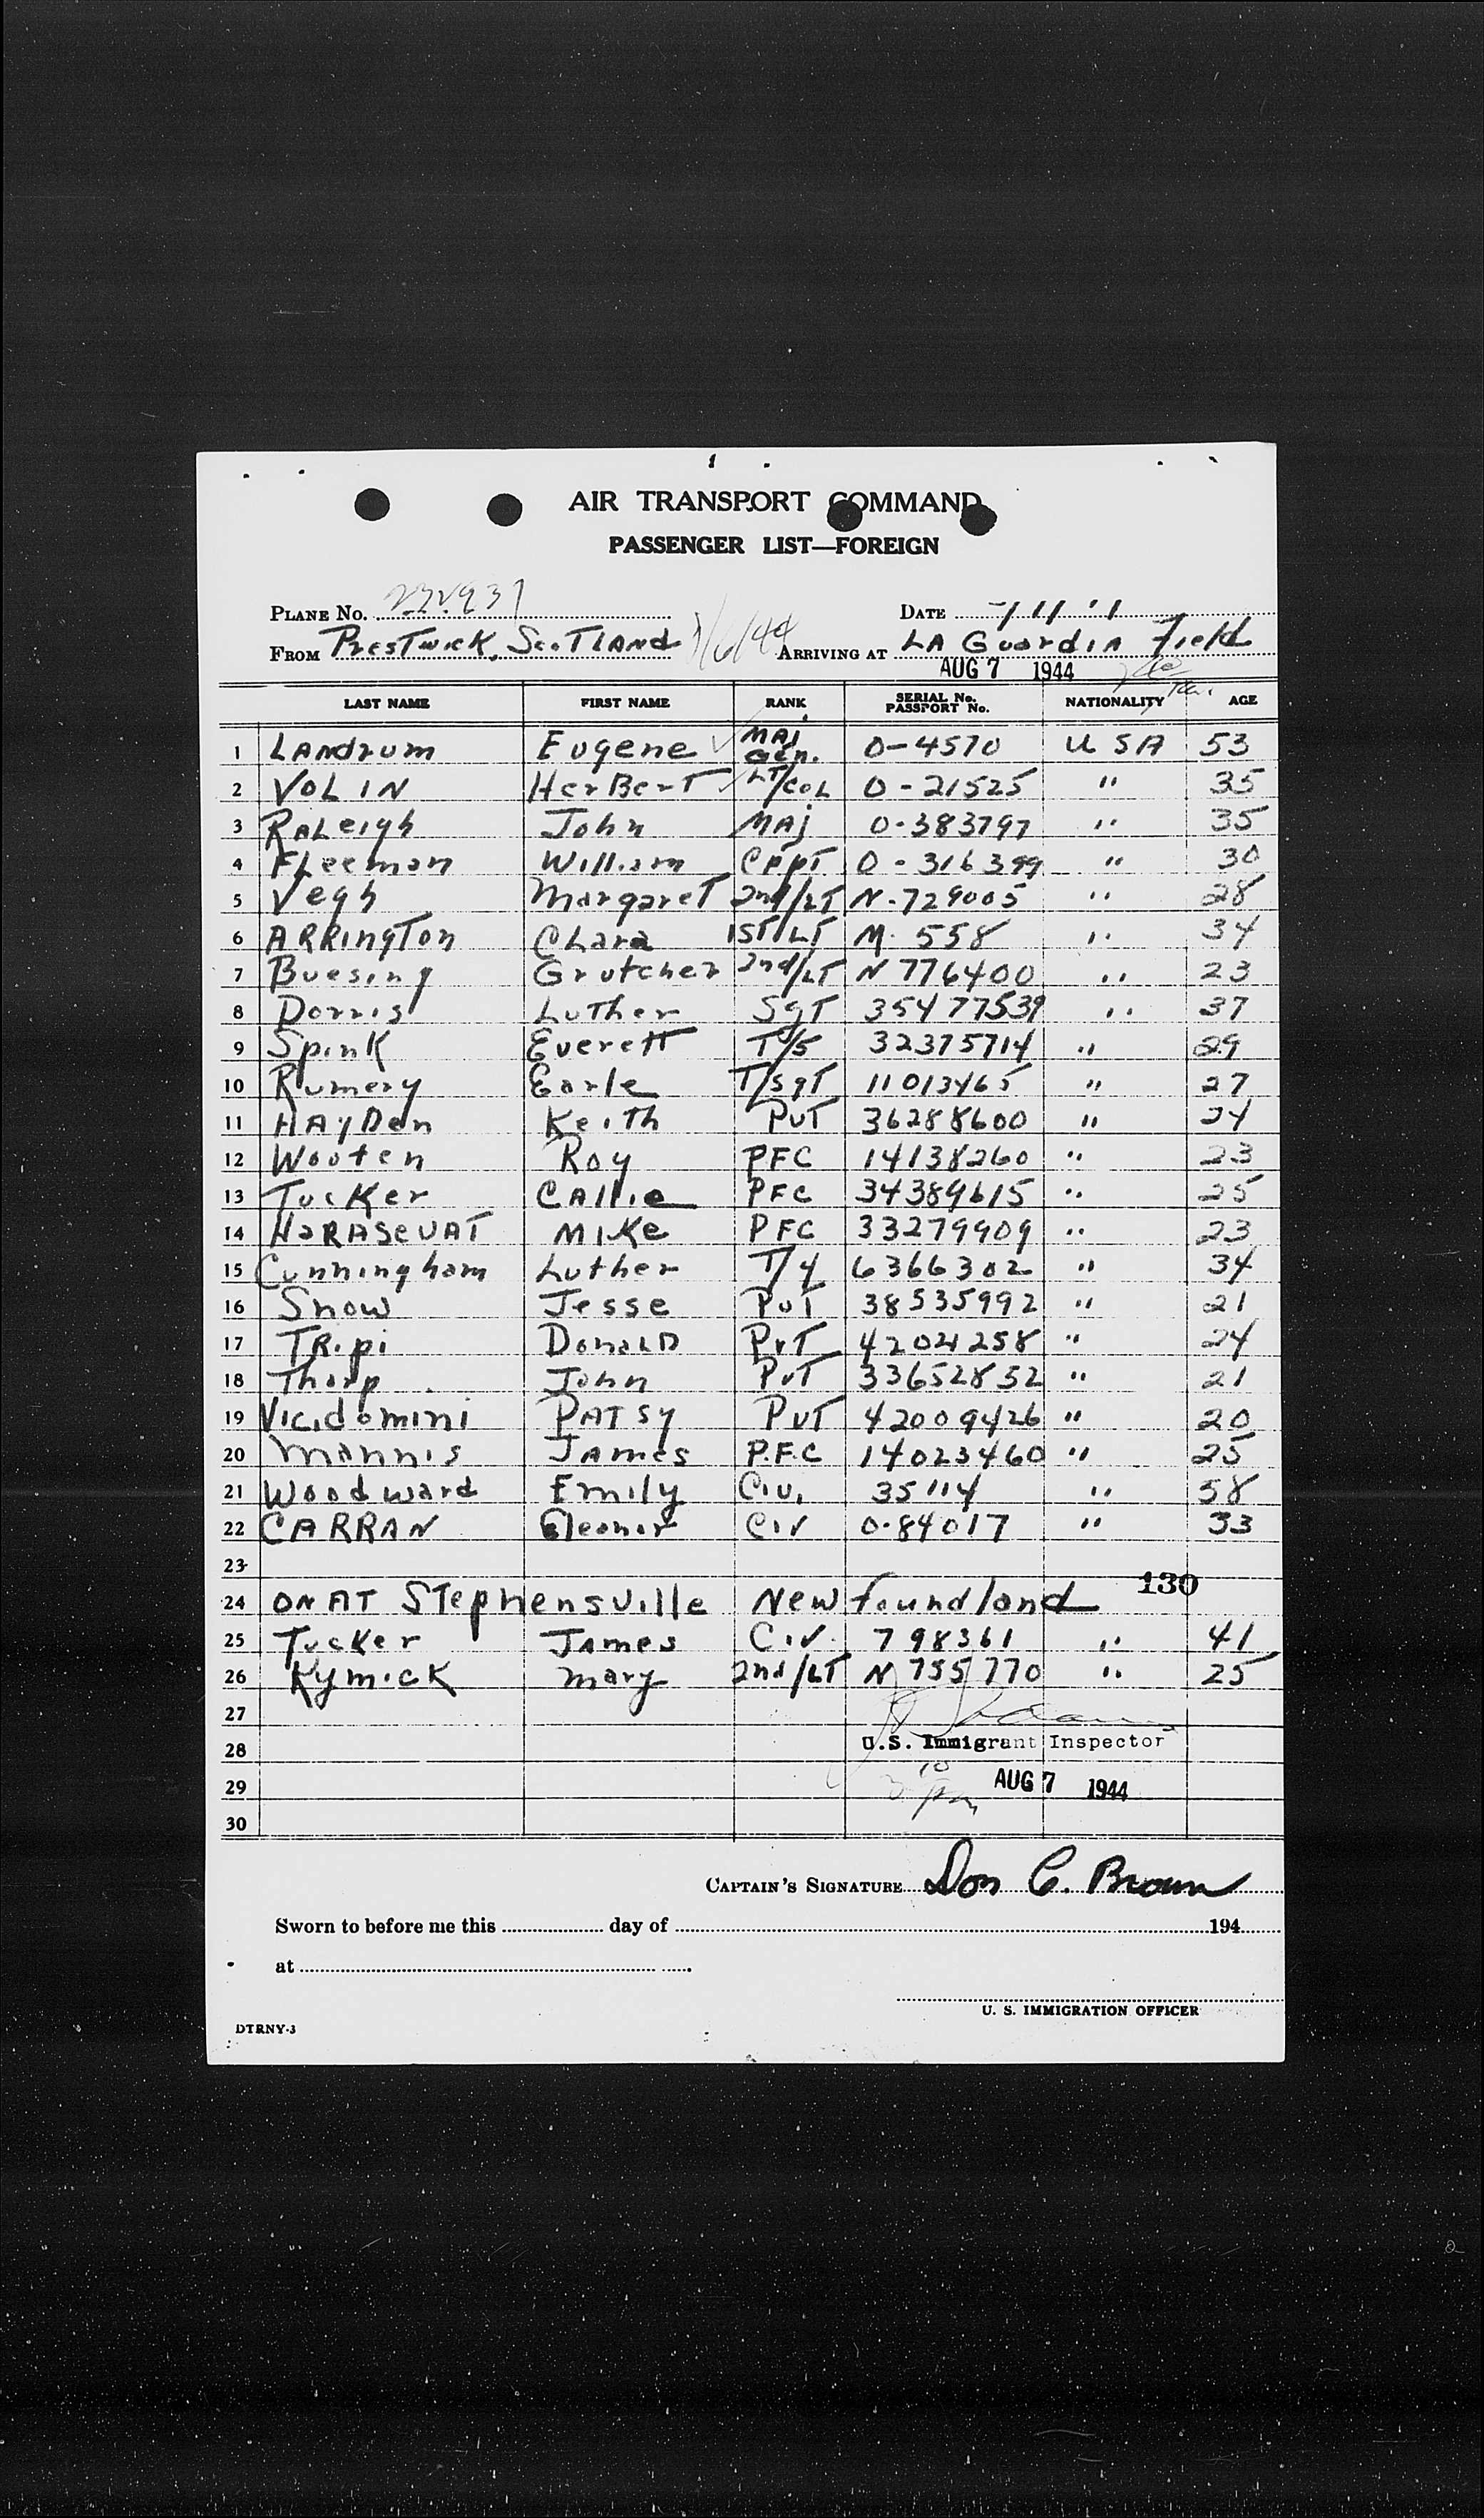 AIR TRANSPORT COMMAND
PASSENGER LIST—FOREIGN
PLANE No. DATE
FROM PresTwick, ScoTLAnd 8/6/44 ARRIVING AT LA GuardiA Field
AUG 7 1944
LAST NAME FIRST NAME RANK SERIAL No. PASSPORT No. NATIONALITY AGE
1 LAndrum Eugene MAj Gen. O-4570 U S A 53
2 VOLIN HerBerT LT/COL O-21525 " 35
3 RALeigh John MAj O-383797 " 35
4 FLeeman William CApT O-316399 " 30
5 Vegh MargareT 2nd/LT N-729005 " 28
6 ARRingTon CLara 1ST/LT M-558 " 34
7 Buesing Grutcher 2nd/LT N 776400 " 23
8 Dorris LuTher SgT 35477539 " 37
9 Spink EvereTT T/5 32375714 " 29
10 Rumery Earle T/sgT 11013465 " 27
11 HAyDen KeiTh PvT 36288600 " 24
12 Wooten Roy PFC 14138260 " 23
13 Tucker CAllie PFC 34389615 " 25
14 HaRASeVAT MIKe PFC 33279909 " 23
15 Cunningham Luther T/4 6366302 " 34
16 Snow Jesse PvT 38535992 " 21
17 TRipi DonaLD PvT 42041258 " 24
18 Tharp John PvT 33652852 " 21
19 Vicidomini PATSy PvT 42009426 " 20
20 Mannis JAmes P.F.C 14023460 " 25
21 Woodward Emily Civ. 35114 " 58
22 CARRAN Eleanor Civ O-84017 " 33
23
130
24 ON AT STephensville Newfoundland
25 Tucker JAmes Civ. 798361 " 41
26 Kymick Mary 2nd/LT N 755770 " 25
27
28 U.S. Immigrant Inspector
29 AUG 7 1944
30
CAPTAIN'S SIGNATURE Don C. Brown
Sworn to before me this day of 194
at
U. S. IMMIGRATION OFFICER
DTRNY-3